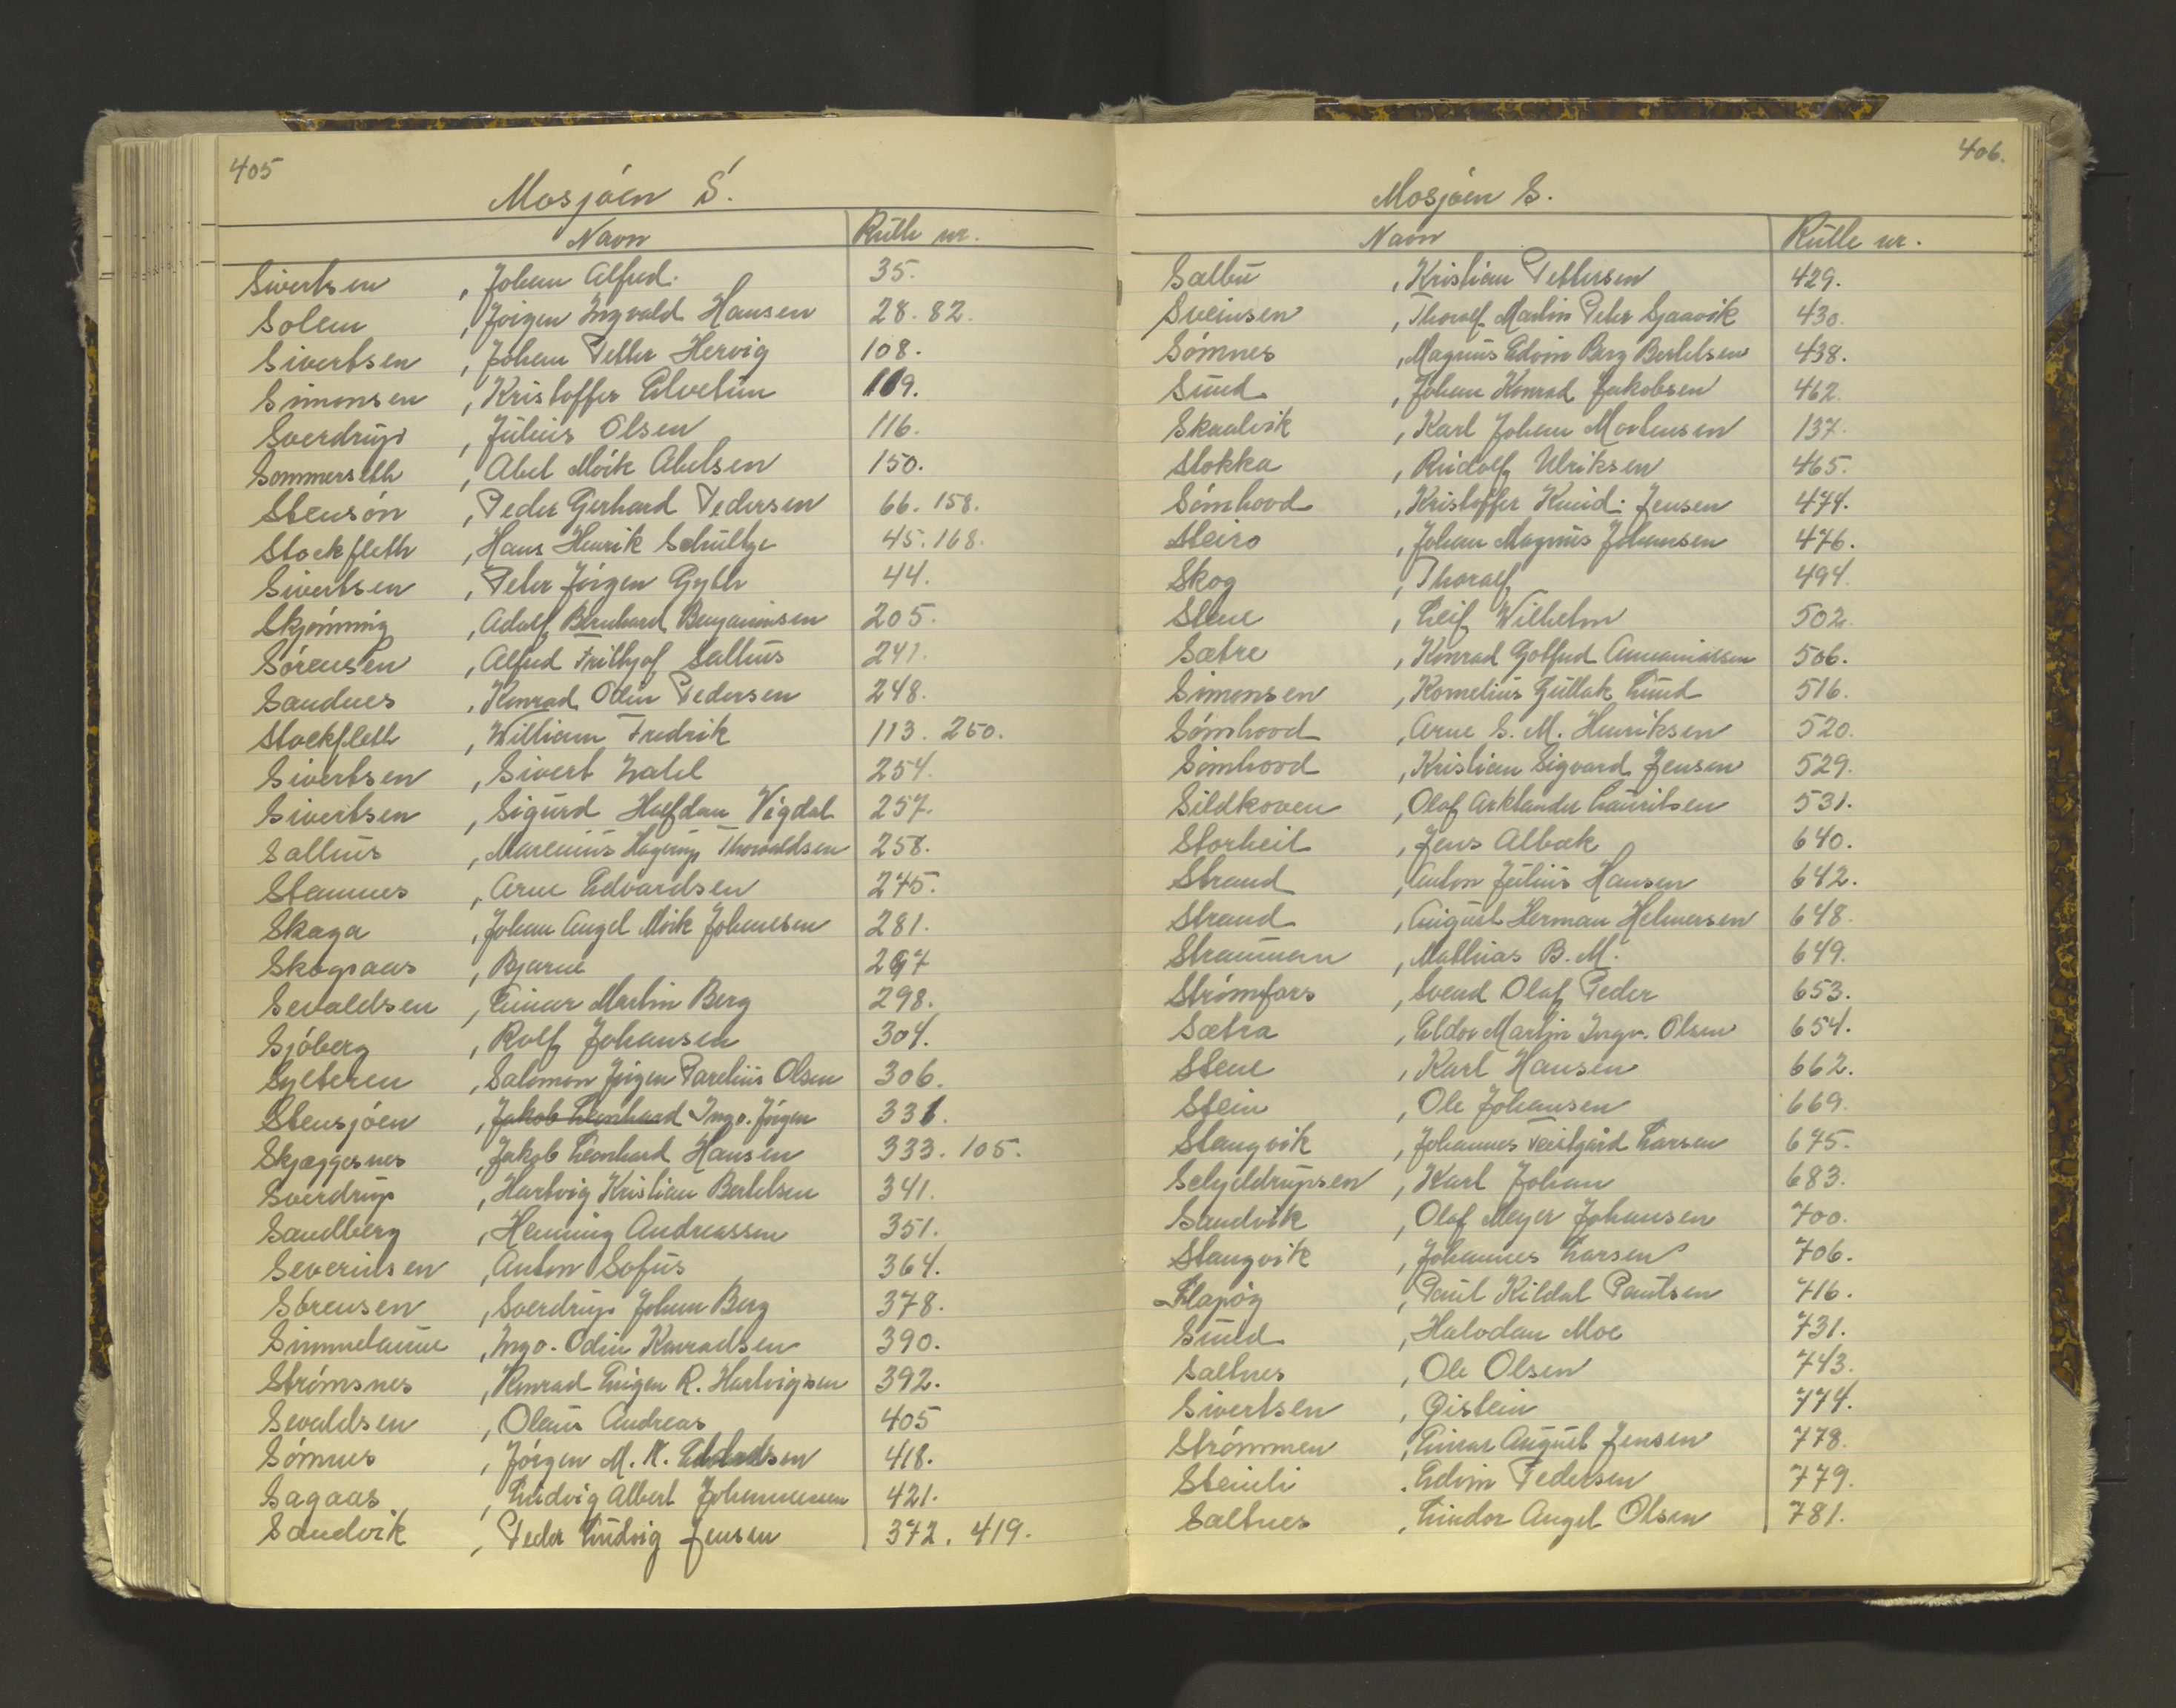 405
Mosjöen S.
Navn Rulle nr.
Sivertsen, Johan Alfred. 35.
Solem, Jörgen Ingvald Hansen 28. 82.
Sivertsen, Johan Petter Hervig 108.
Simonsen, Kristoffer Elvetun 119.
Sverdrup, Julius Olsen 116.
Sommerseth, Abel Mörk Abelsen 150.
Stensön, Peder Gerhard Pedersen 66. 158.
Stockfleth, Hans Henrik Schultze 45. 168.
Sivertsen, Peter Jörgen Gyth 44.
Skjönning, Adolf Bernhard Benjaminsen 205.
Sörensen, Alfred Frithjof Salthus 241.
Sandnes, Konrad Odin Pedersen 248.
Stockfleth, William Fredrik 113. 250.
Sivertsen, Sivert Zahl 254.
Sivertsen, Sigurd Halfdan Vigdal 257.
Salthus, Marenius Hagerup Thorvaldsen 258.
Stamnes, Arne Edvardsen 275.
Skaga, Johan Angel Mörk Johansen 281.
Skogsaas, Bjarne 297
Sevaldsen, Einar Martin Berg 298.
Sjöberg, Rolf Johansen 304.
Sylteren, Salomon Jörgen Parelius Olsen 306.
Stensjöen, Jakob Leonhard Ingv. Jörgen 331.
Skjæggesnes, Jakob Leonhard Hansen 333. 105.
Sverdrup, Hartvig Kristian Bertelsen 341.
Sandberg, Henning Andreassen 351.
Severinsen, Anton Sofus 364.
Sörensen, Sverdrup Johan Berg 378.
Simmelaune, Ingv. Odin Konradsen 390.
Strömsnes, Konrad Eugen R. Hartvigsen 392.
Sevaldsen, Olaus Andreas 405
Sömnes, Jörgen M. K. 418.
Sagaas, Ludvig Albert Johannessen 421.
Sandvik, Peder Ludvig Jensen 372. 419.
406.
Mosjöen S.
Navn Rulle nr.
Sælbu, Kristian Pettersen 429.
Sveinsen, Thoralf Martin Peter Sjaavik 430.
Sömnes, Magnus Edvin Berg Bertelsen 438.
Sund, Johan Konrad Jakobsen 462.
Skaalvik, Karl Johan Mortensen 137.
Stokka, Rudolf Ulriksen 465.
Sömhovd, Kristoffer Knud. Jensen 474.
Steiro, Johan Magnus Johansen 476.
Skog, Thoralf 494.
Stene, Leif Wilhelm 502.
Sætre, Konrad Gotfred Annaniassen 506.
Simonsen, Kornelius Gullak Lund 516.
Sömhovd, Arne S. M. Henriksen 520.
Sömhovd, Kristian Sigvard Jensen 529.
Sildkoven, Olaf Arktander Lauritsen 531.
Storheil, Jens Albæk 640.
Strand, Anton Julius Hansen 642.
Strand, August Herman Helmersen 648.
Strauman, Mathias B. M. 649.
Strömfors, Svend Olaf Peder 653.
Sætra, Eldor Martin Ingv. Olsen 654.
Stene, Karl Hansen 662.
Stein, Ole Johansen 669.
Stangvik, Johannes Larsen 675.
Schjelderupsen, Karl Johan 683.
Sandvik, Olaf Meyer Johansen 700.
Stangvik, Johannes Larsen 706.
Slapöy, Paul Kildal Paulsen 716.
Sund, Halvdan Moe 731.
Saltnes, Ole Olsen 743.
Sivertsen, Øistein 774.
Strömmen, Einar August Jensen 778.
Steinli, Edvin Pedersen 779.
Saltnes, Lindor Angel Olsen 781.